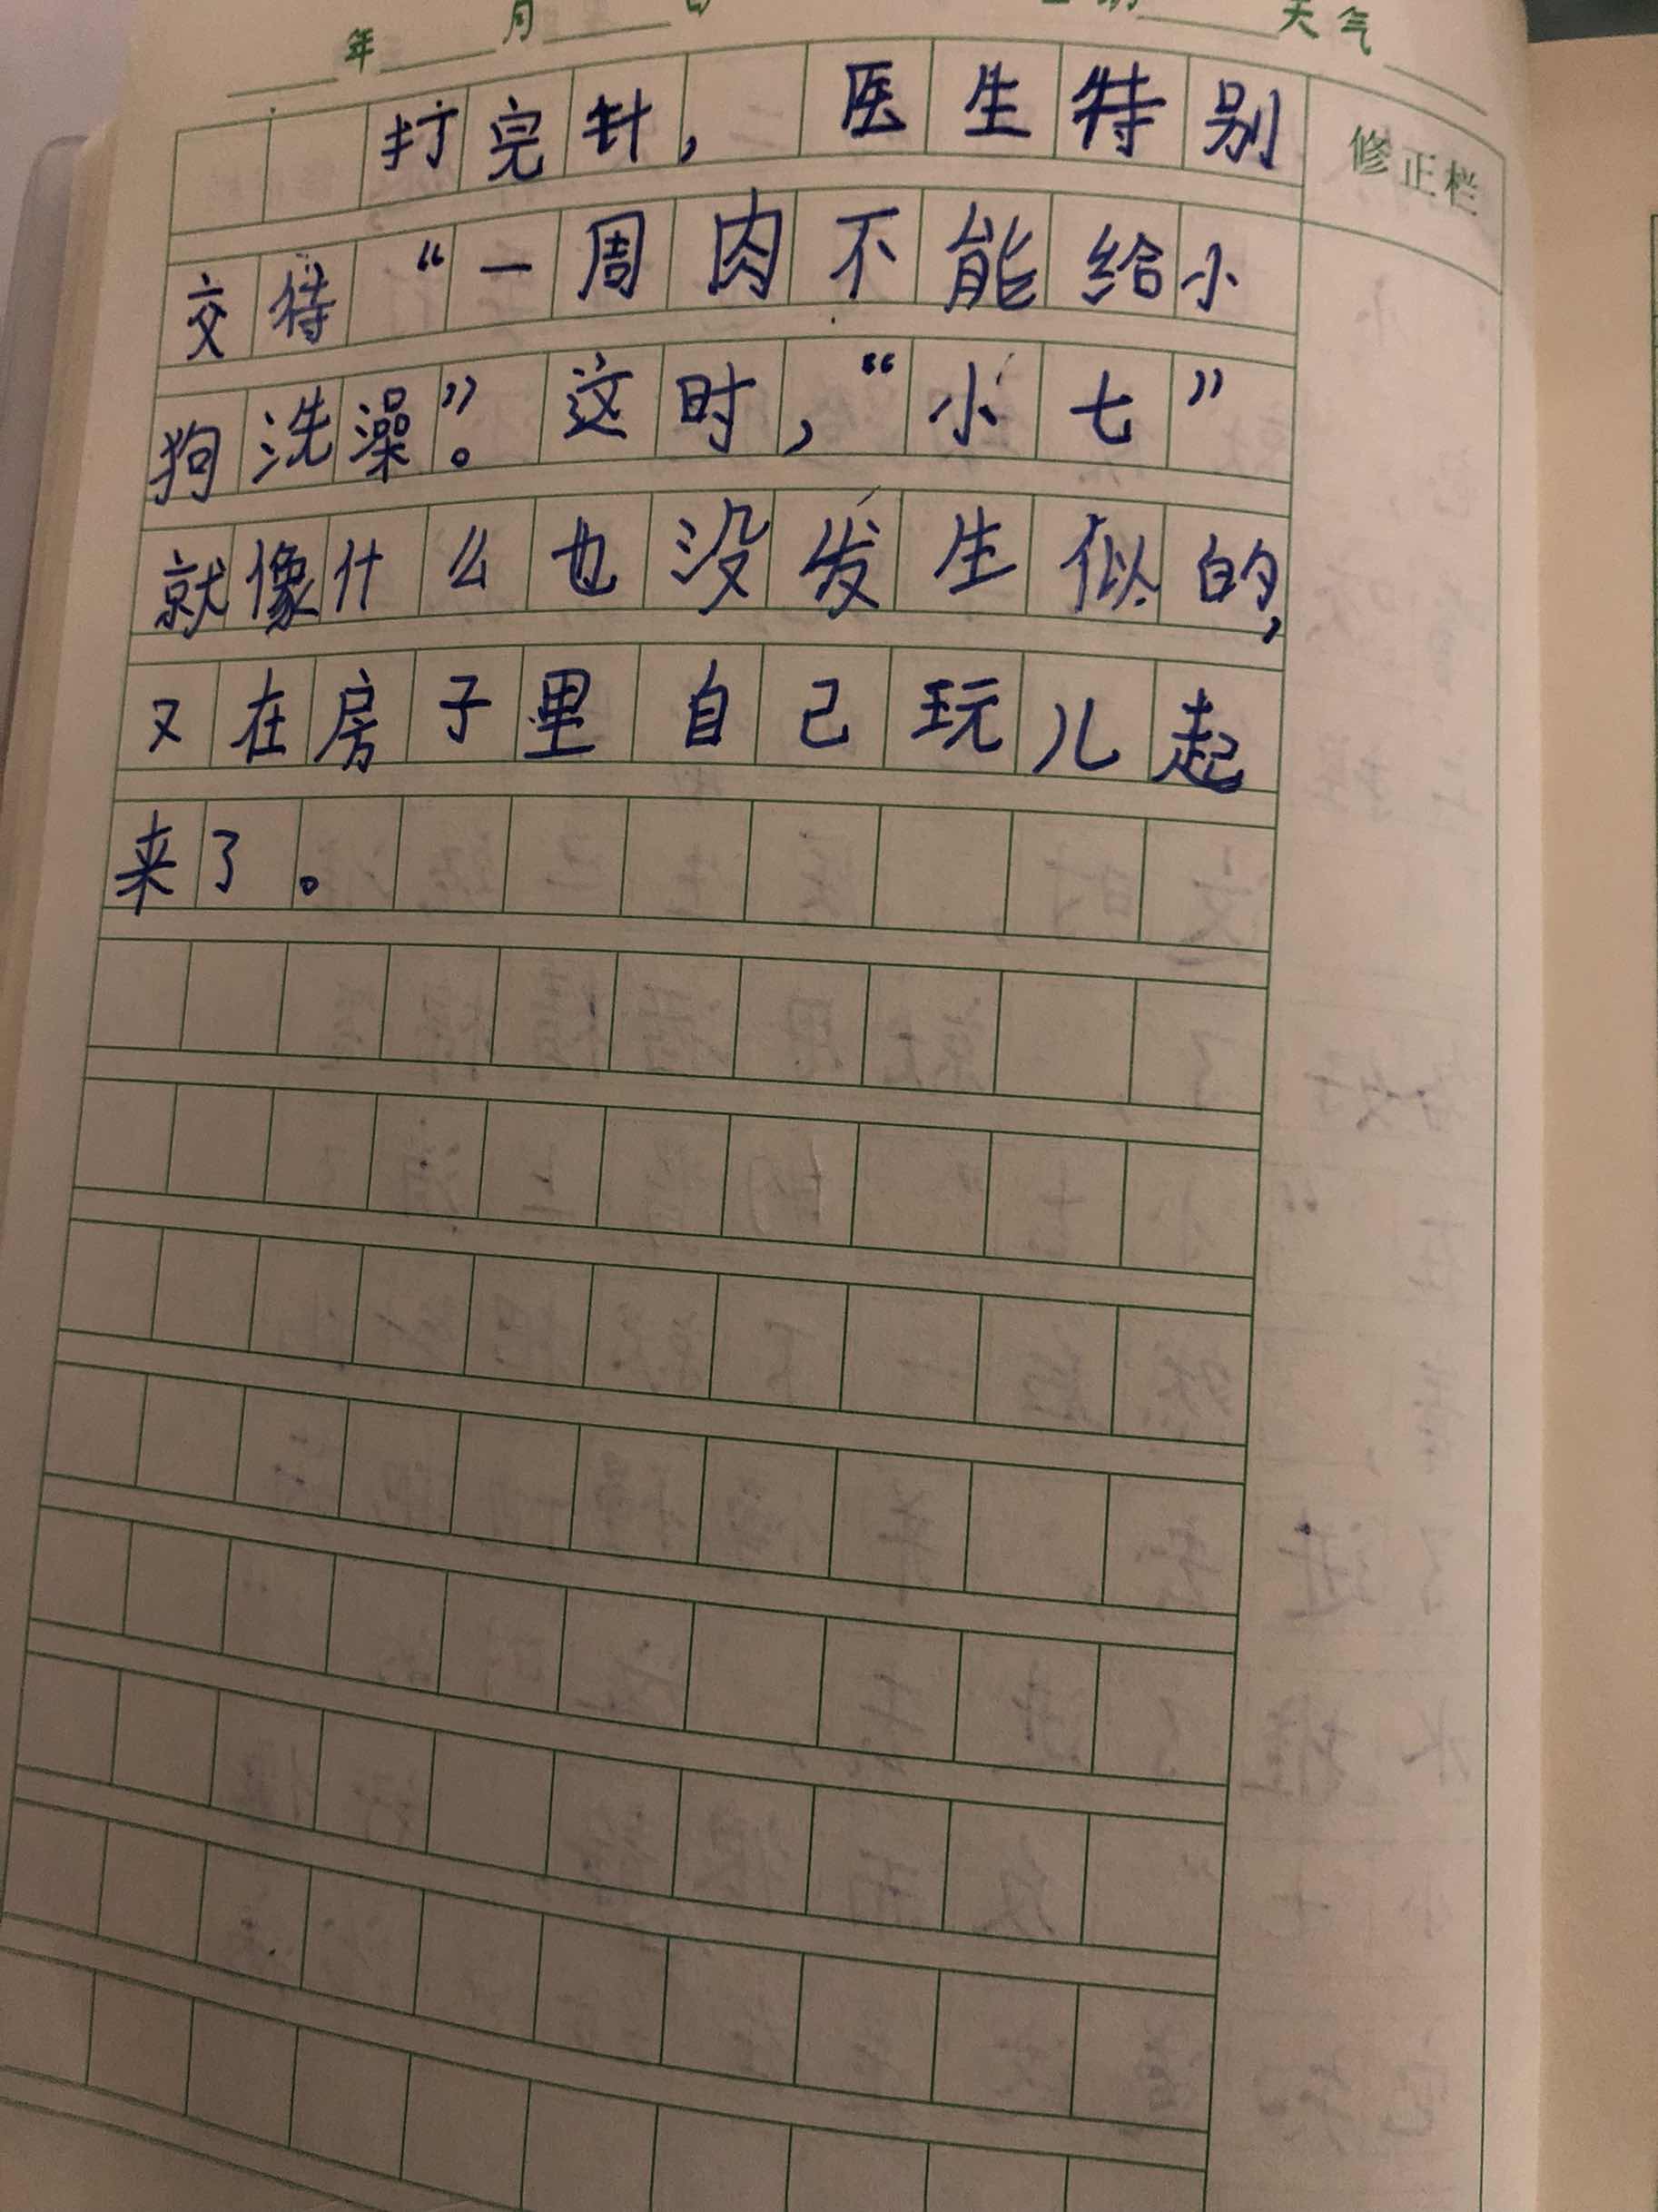 年 月 日 天气
打完针，医生特别
修正栏
交待“一周肉不能给小
狗洗澡”。这时，“小七”
就像什么也没发生似的，
又在房子里自己玩儿起
来了。